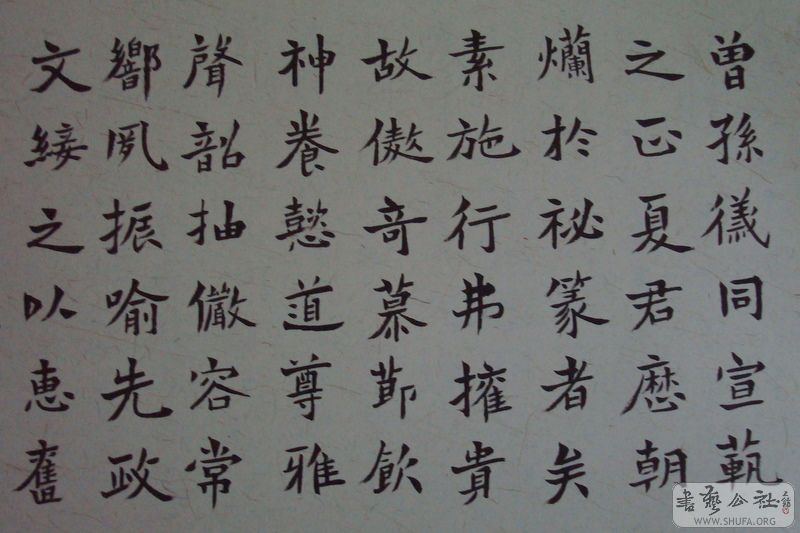 曾孫徽同宣蓺
之正夏君歷朝
爛於祕篆者矣
素施行弗擁貴
故傲奇慕節飲
神養懿道尊雅
聲韶抽儼容常
嚮夙振喻先政
文綏之以惠奮
書藝公社
WWW.SHUFA.ORG